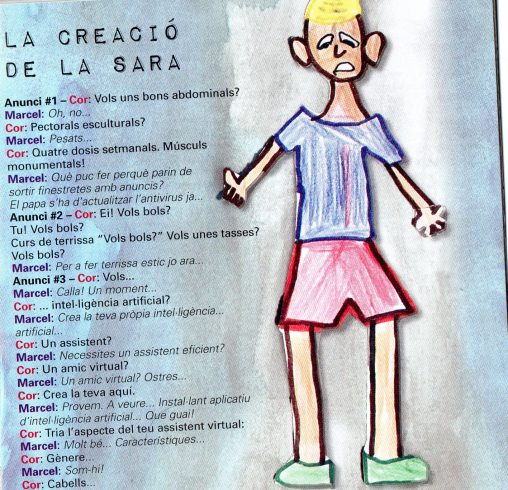 LA CREACIÓ
DE LA SARA
Anunci #1 – Cor: Vols uns bons abdominals?
Marcel: Oh, no...
Cor: Pectorals esculturals?
Marcel: Pesats...
Cor: Quatre dosis setmanals. Músculs
monumentals!
Marcel: Què puc fer perquè parin de
sortir finestretes amb anuncis?
El papa s'ha d'actualitzar l'antivirus ja...
Anunci #2 – Cor: Ei! Vols bols?
Tu! Vols bols?
Curs de terrissa "Vols bols?" Vols unes tasses?
Vols bols?
Marcel: Per a fer terrissa estic jo ara...
Anunci #3 – Cor: Vols...
Marcel: Calla! Un moment...
Cor: ... intel·ligència artificial?
Marcel: Crea la teva pròpia intel·ligència...
artificial...
Cor: Un assistent?
Marcel: Necessites un assistent eficient?
Cor: Un amic virtual?
Marcel: Un amic virtual? Ostres...
Cor: Crea la teva aquí.
Marcel: Provem. A veure... Instal·lant aplicatiu
d'intel·ligència artificial... Que guai!
Cor: Tria l'aspecte del teu assistent virtual:
Marcel: Molt bé... Característiques...
Cor: Gènere...
Marcel: Som-hi!
Cor: Cabells...